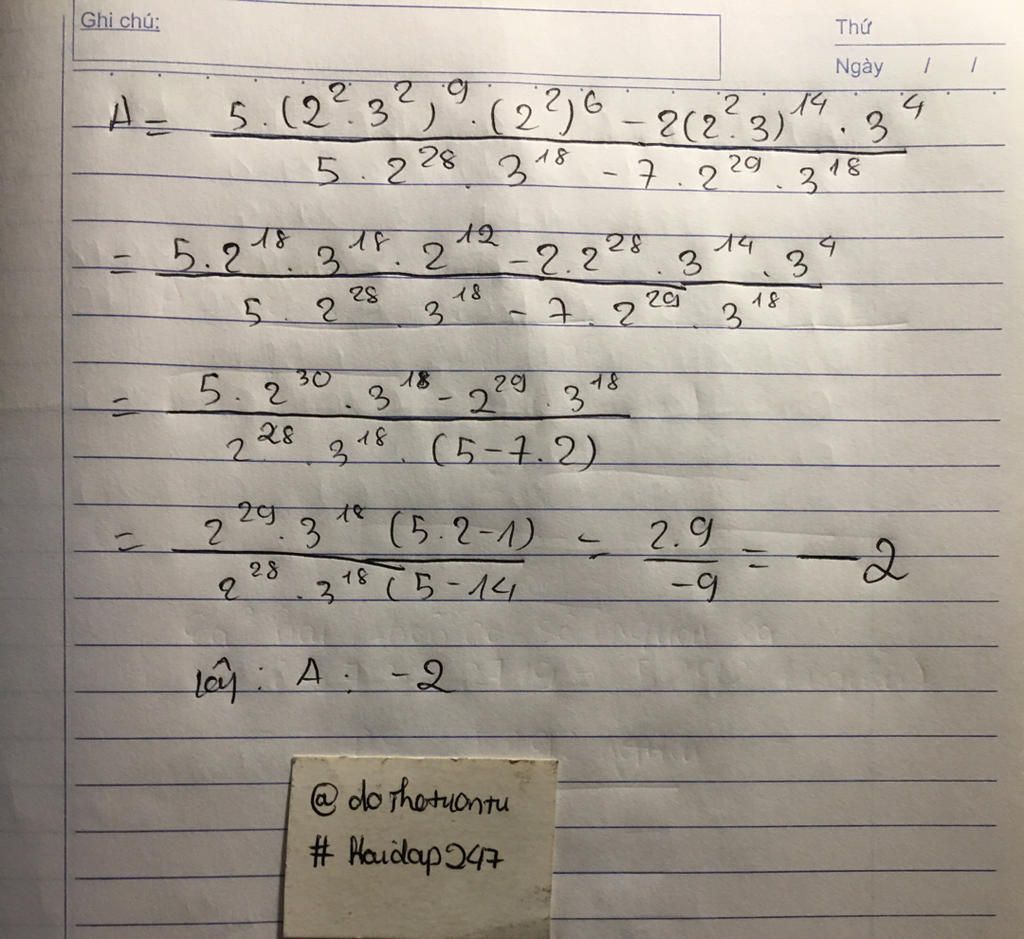 Ghi chú:
Thứ
Ngày / /
A = \frac{5.(2^2.3^2)^9.(2^2)^6 - 2(2^2.3)^{14}.3^4}{5.2^{28}.3^{18} - 7.2^{29}.3^{18}}
= \frac{5.2^{18}.3^{18}.2^{12} - 2.2^{28}.3^{14}.3^4}{5.2^{28}.3^{18} - 7.2^{29}.3^{18}}
= \frac{5.2^{30}.3^{18} - 2^{29}.3^{18}}{2^{28}.3^{18}.(5-7.2)}
= \frac{2^{29}.3^{18}(5.2-1)}{2^{28}.3^{18}(5-14} = \frac{2.9}{-9} = -2
Vậy : A : -2
@dothotuontu
# Hoidap247